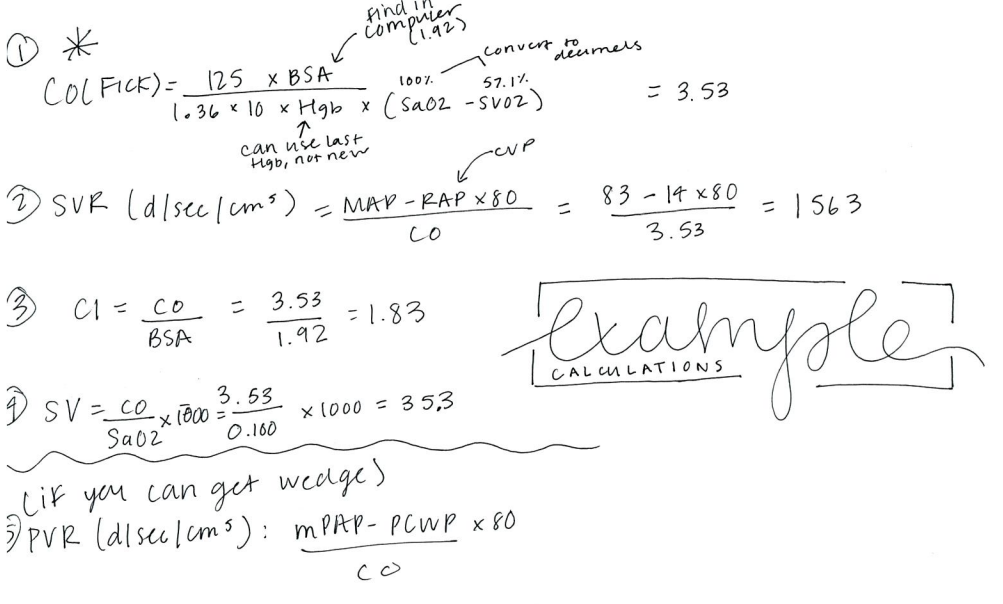 find in
computer
(1.92)
① *
convert to
decimals
CO(FICK) = 125 × BSA / 1.36 × 10 × Hgb × (SaO2 - SVO2) = 3.53
100% 57.1%
can use last
Hgb, not new
CVP
② SVR (d/sec/cm⁵) = MAP - RAP × 80 / CO = 83 - 14 × 80 / 3.53 = 1563
③ CI = CO / BSA = 3.53 / 1.92 = 1.83
example
CALCULATIONS
④ SV = CO / SaO2 × 1000 = 3.53 / 0.100 × 1000 = 35.3
(if you can get wedge)
⑤ PVR (d/sec/cm⁵): mPAP - PCWP × 80 / CO